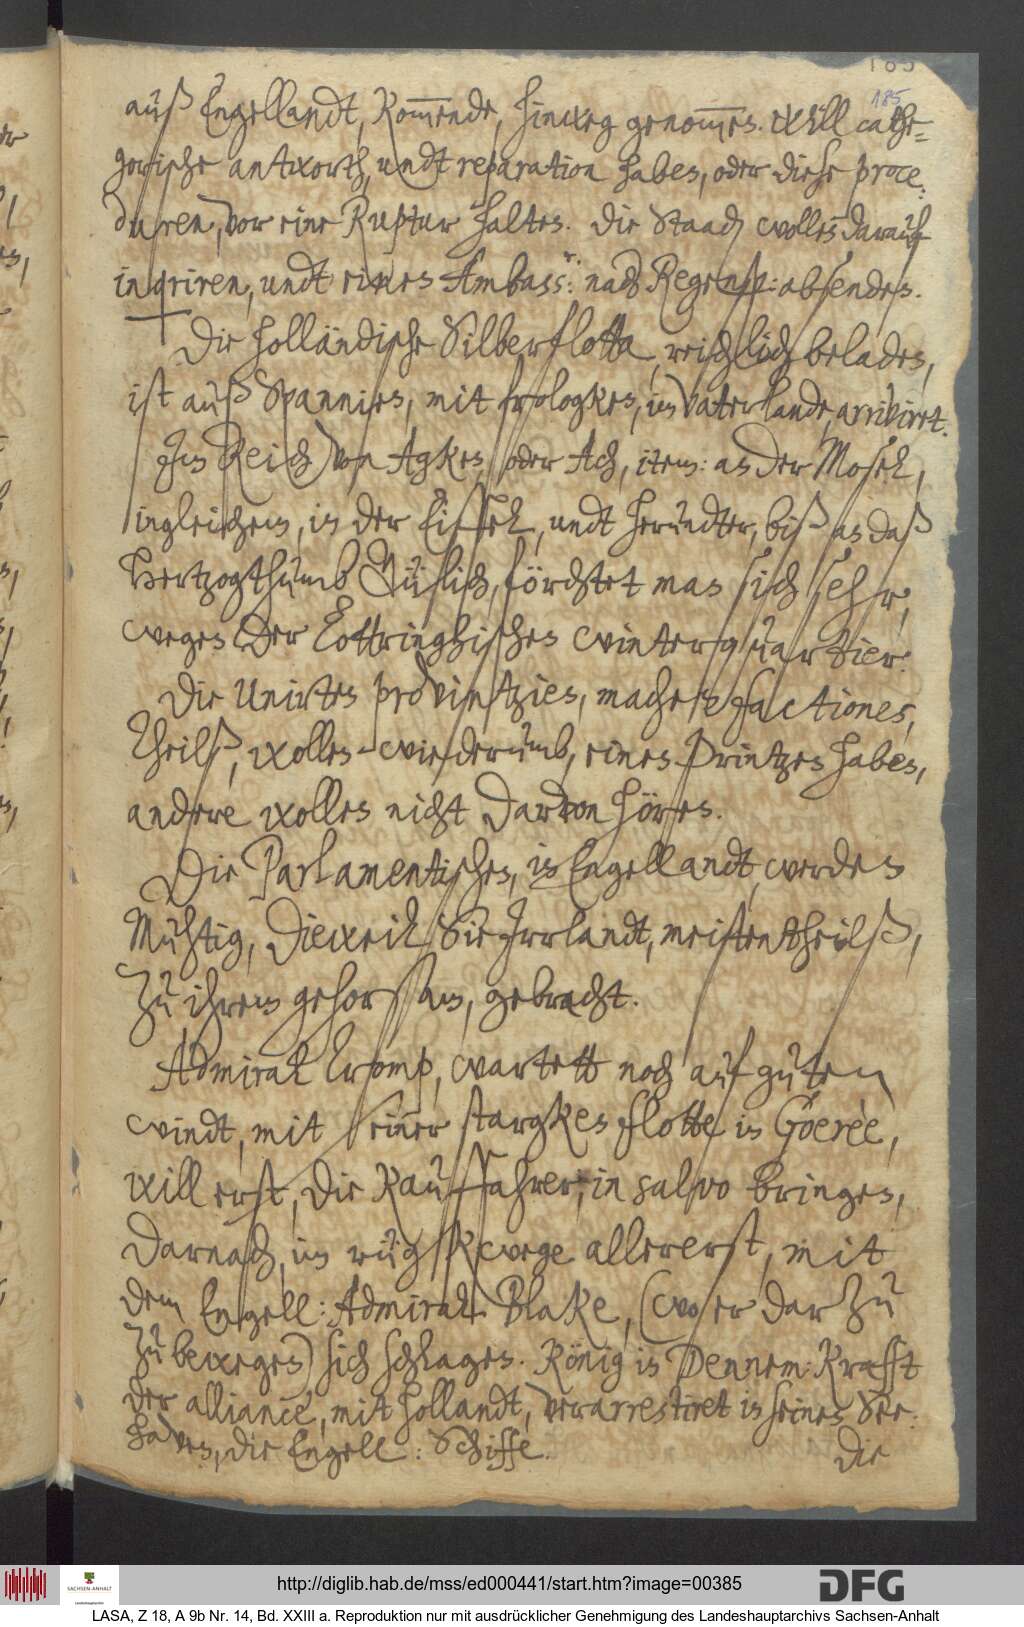 185
auß Engellandt, kom̅ende, hinweg genom̅en. Will cathe-
gorische antworth, undt reparation haben, oder diese proce-
duren, vor eine Ruptur halten. Die Staadn wollen darauf
inqviriren, undt einen Ambassr: nach Regensp: absenden.
Die holländische Silberflotta, reichlich beladen,
ist auß Spannien, mit frologken, im Vaterlande, arriviret.
Im Reich von Agken, oder Ach, item: an der Mosel,
ingleichem, in der Eiffel, undt herundter, biß an daß
Hertzogthumb Gülich, förchtet man sich sehr,
wegen der Lottringhischen winterquartier.
Die Unirten provintzien, machen factiones,
theilß, wollen wiederumb, einen Printzen haben,
andere wollen nicht darvon hören.
Die Parlamentischen, in Engellandt, werden
Muhtig, dieweil Sie Irrlandt, meistentheilß,
zu ihrem gehorsam, gebracht.
Admiral Tromp, wartett noch auf guten
windt, mit seiner stargken flotte in Goerèe,
will erst, die Kauffahrer, in salvo bringen,
darnach, im rügkwege allererst, mit
dem Engell: Admiral Blake, (wo er dar zu
zu bewegen) sich schlagen. König in Dennem: Krafft
der alliance, mit hollandt, verarrestiret in seinen See-
haven, die Engell: Schiffe.
die
http://diglib.hab.de/mss/ed000441/start.htm?image=00385
DFG
SACHSEN-ANHALT
LASA, Z 18, A 9b Nr. 14, Bd. XXIII a. Reproduktion nur mit ausdrücklicher Genehmigung des Landeshauptarchivs Sachsen-Anhalt